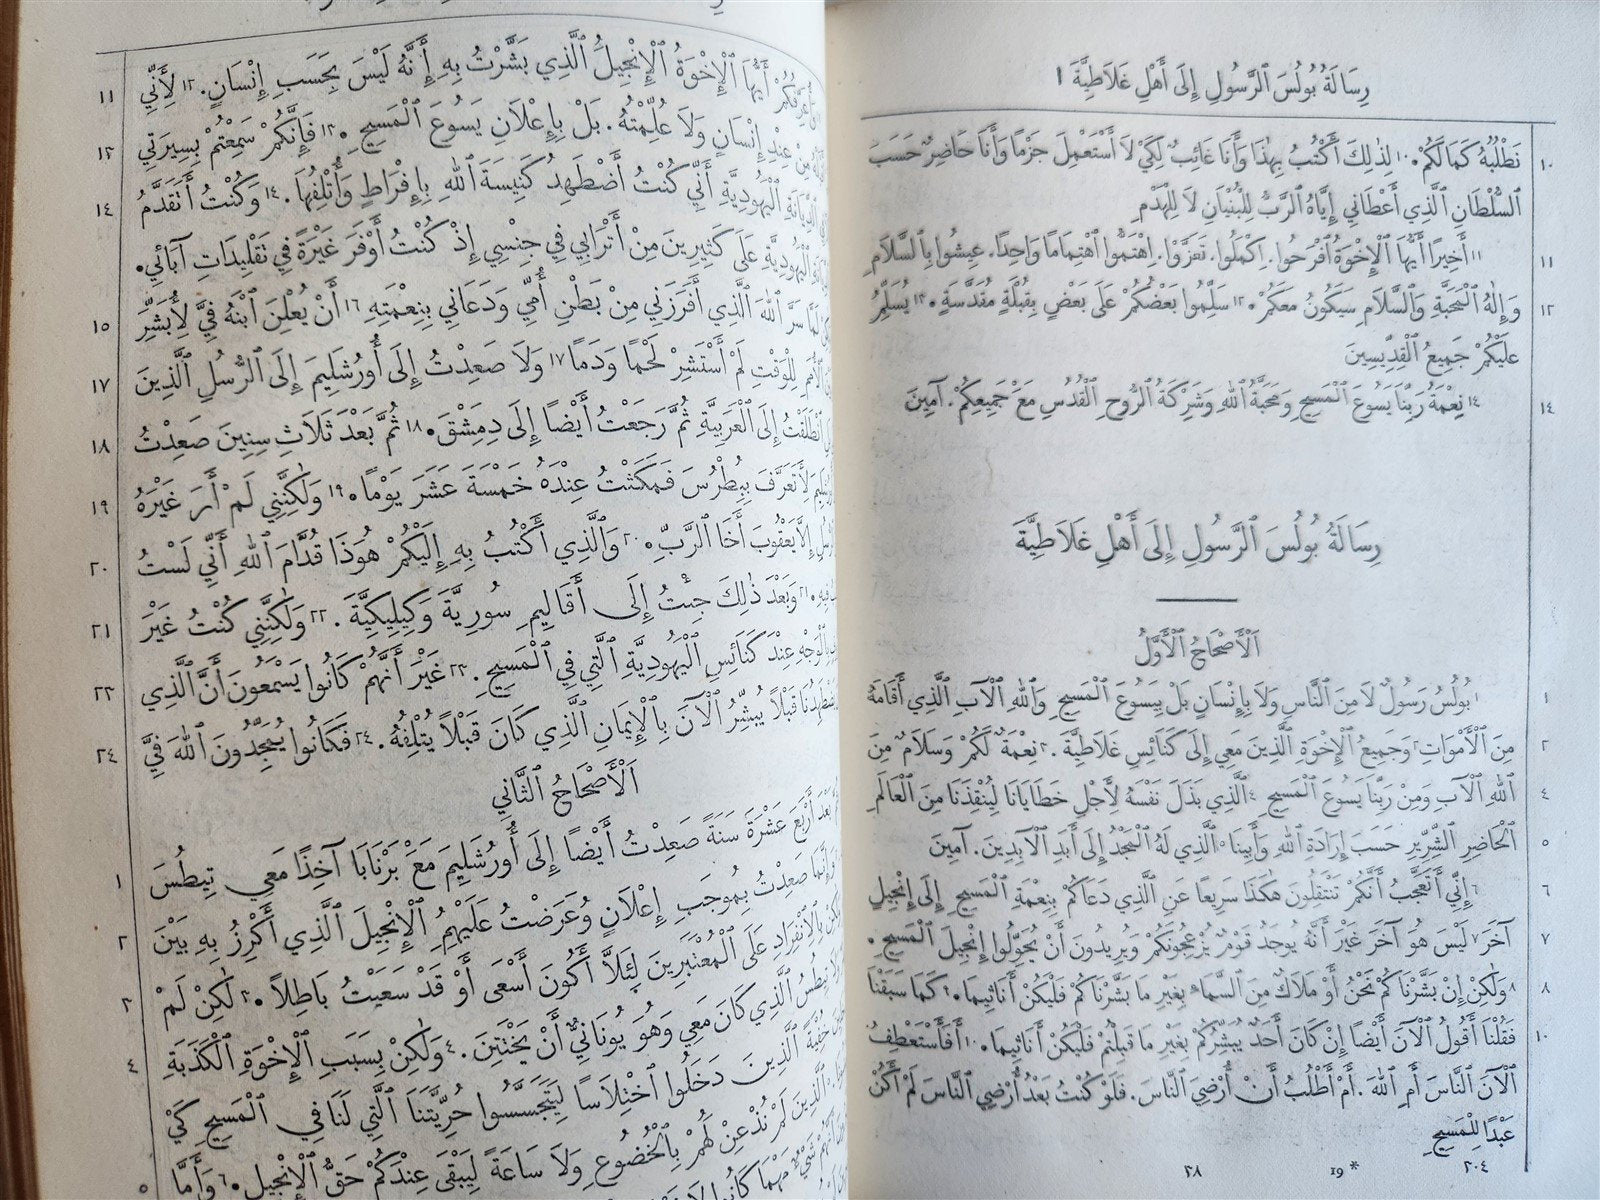 رِسَالَةُ بُولُسَ ٱلرَّسُولِ إِلَى أَهْلِ غَلَاطِيَّةَ ١
١٠ نَطْلُبُهُ كَمَالَكُمْ. ١٠ لِذٰلِكَ أَكْتُبُ بِهٰذَا وَأَنَا غَائِبٌ لِكَيْ لَا أَسْتَعْمِلَ جَزْمًا وَأَنَا حَاضِرٌ حَسَبَ
ٱلسُّلْطَانِ ٱلَّذِي أَعْطَانِي إِيَّاهُ ٱلرَّبُّ لِلْبُنْيَانِ لَا لِلْهَدْمِ
١١ ١١ أَخِيرًا أَيُّهَا ٱلْإِخْوَةُ ٱفْرَحُوا. اِكْمَلُوا. تَعَزَّوْا. اِهْتَمُّوا ٱهْتِمَامًا وَاحِدًا. عِيشُوا بِٱلسَّلَامِ
١٢ وَإِلٰهُ ٱلْمَحَبَّةِ وَٱلسَّلَامِ سَيَكُونُ مَعَكُمْ. ١٢ سَلِّمُوا بَعْضُكُمْ عَلَى بَعْضٍ بِقُبْلَةٍ مُقَدَّسَةٍ. ١٣ يُسَلِّمُ
عَلَيْكُمْ جَمِيعُ ٱلْقِدِّيسِينَ
١٤ ١٤ نِعْمَةُ رَبِّنَا يَسُوعَ ٱلْمَسِيحِ وَمَحَبَّةُ ٱللهِ وَشَرِكَةُ ٱلرُّوحِ ٱلْقُدُسِ مَعَ جَمِيعِكُمْ. آمِينَ
رِسَالَةُ بُولُسَ ٱلرَّسُولِ إِلَى أَهْلِ غَلَاطِيَّةَ
اَلْأَصْحَاحُ ٱلْأَوَّلُ
١ ١ بُولُسُ رَسُولٌ لَا مِنَ ٱلنَّاسِ وَلَا بِإِنْسَانٍ بَلْ بِيَسُوعَ ٱلْمَسِيحِ وَٱللهِ ٱلْآبِ ٱلَّذِي أَقَامَهُ
٢ مِنَ ٱلْأَمْوَاتِ ٢ وَجَمِيعُ ٱلْإِخْوَةِ ٱلَّذِينَ مَعِي إِلَى كَنَائِسِ غَلَاطِيَّةَ. ٣ نِعْمَةٌ لَكُمْ وَسَلَامٌ مِنَ
٤ ٱللهِ ٱلْآبِ وَمِنْ رَبِّنَا يَسُوعَ ٱلْمَسِيحِ ٤ ٱلَّذِي بَذَلَ نَفْسَهُ لِأَجْلِ خَطَايَانَا لِيُنْقِذَنَا مِنَ ٱلْعَالَمِ
٥ ٱلْحَاضِرِ ٱلشِّرِّيرِ حَسَبَ إِرَادَةِ ٱللهِ وَأَبِينَا ٥ ٱلَّذِي لَهُ ٱلْمَجْدُ إِلَى أَبَدِ ٱلْآبِدِينَ. آمِينَ
٦ ٦ إِنِّي أَتَعَجَّبُ أَنَّكُمْ تَنْتَقِلُونَ هٰكَذَا سَرِيعًا عَنِ ٱلَّذِي دَعَاكُمْ بِنِعْمَةِ ٱلْمَسِيحِ إِلَى إِنْجِيلٍ
٧ آخَرَ ٧ لَيْسَ هُوَ آخَرَ غَيْرَ أَنَّهُ يُوجَدُ قَوْمٌ يُزْعِجُونَكُمْ وَيُرِيدُونَ أَنْ يُحَوِّلُوا إِنْجِيلَ ٱلْمَسِيحِ.
٨ ٨ وَلٰكِنْ إِنْ بَشَّرْنَاكُمْ نَحْنُ أَوْ مَلَاكٌ مِنَ ٱلسَّمَاءِ بِغَيْرِ مَا بَشَّرْنَاكُمْ فَلْيَكُنْ أَنَاثِيمَا. ٩ كَمَا سَبَقْنَا
١٠ فَقُلْنَا أَقُولُ ٱلْآنَ أَيْضًا إِنْ كَانَ أَحَدٌ يُبَشِّرُكُمْ بِغَيْرِ مَا قَبِلْتُمْ فَلْيَكُنْ أَنَاثِيمَا. ١٠ أَفَأَسْتَعْطِفُ
ٱلْآنَ ٱلنَّاسَ أَمِ ٱللهَ. أَمْ أَطْلُبُ أَنْ أُرْضِيَ ٱلنَّاسَ. فَلَوْ كُنْتُ بَعْدُ أُرْضِي ٱلنَّاسَ لَمْ أَكُنْ
عَبْدًا لِلْمَسِيحِ
٢٠٤ 19 * ٢٨
١١ أَيُّهَا ٱلْإِخْوَةُ ٱلْإِنْجِيلَ ٱلَّذِي بَشَّرْتُ بِهِ إِنَّهُ لَيْسَ بِحَسَبِ إِنْسَانٍ. ١٢ لِأَنِّي
١٣ مِنْ عِنْدِ إِنْسَانٍ وَلَا عُلِّمْتُهُ. بَلْ بِإِعْلَانِ يَسُوعَ ٱلْمَسِيحِ. ١٣ فَإِنَّكُمْ سَمِعْتُمْ بِسِيرَتِي
١٤ ٱلدِّيَانَةِ ٱلْيَهُودِيَّةِ أَنِّي كُنْتُ أَضْطَهِدُ كَنِيسَةَ ٱللهِ بِإِفْرَاطٍ وَأُتْلِفُهَا. ١٤ وَكُنْتُ أَتَقَدَّمُ
ٱلْيَهُودِيَّةِ عَلَى كَثِيرِينَ مِنْ أَتْرَابِي فِي جِنْسِي إِذْ كُنْتُ أَوْفَرَ غَيْرَةً فِي تَقْلِيدَاتِ آبَائِي.
١٥ سَرَّ ٱللهَ ٱلَّذِي أَفْرَزَنِي مِنْ بَطْنِ أُمِّي وَدَعَانِي بِنِعْمَتِهِ ١٦ أَنْ يُعْلِنَ ٱبْنَهُ فِيَّ لِأُبَشِّرَ
١٧ ٱلْأُمَمِ لِلْوَقْتِ لَمْ أَسْتَشِرْ لَحْمًا وَدَمًا ١٧ وَلَا صَعِدْتُ إِلَى أُورُشَلِيمَ إِلَى ٱلرُّسُلِ ٱلَّذِينَ
١٨ ٱنْطَلَقْتُ إِلَى ٱلْعَرَبِيَّةِ ثُمَّ رَجَعْتُ أَيْضًا إِلَى دِمِشْقَ. ١٨ ثُمَّ بَعْدَ ثَلَاثِ سِنِينَ صَعِدْتُ
١٩ لِأَتَعَرَّفَ بِبُطْرُسَ فَمَكَثْتُ عِنْدَهُ خَمْسَةَ عَشَرَ يَوْمًا. ١٩ وَلٰكِنَّنِي لَمْ أَرَ غَيْرَهُ
٢٠ إِلَّا يَعْقُوبَ أَخَا ٱلرَّبِّ. ٢٠ وَٱلَّذِي أَكْتُبُ بِهِ إِلَيْكُمْ هُوَذَا قُدَّامَ ٱللهِ أَنِّي لَسْتُ
٢١ فِيهِ. ٢١ وَبَعْدَ ذٰلِكَ جِئْتُ إِلَى أَقَالِيمِ سُورِيَّةَ وَكِيلِيكِيَّةَ. ٢٢ وَلٰكِنَّنِي كُنْتُ غَيْرَ
٢٣ بِٱلْوَجْهِ عِنْدَ كَنَائِسِ ٱلْيَهُودِيَّةِ ٱلَّتِي فِي ٱلْمَسِيحِ. ٢٣ غَيْرَ أَنَّهُمْ كَانُوا يَسْمَعُونَ أَنَّ ٱلَّذِي
٢٤ قَبْلًا يُبَشِّرُ ٱلْآنَ بِٱلْإِيمَانِ ٱلَّذِي كَانَ قَبْلًا يُتْلِفُهُ. ٢٤ فَكَانُوا يُمَجِّدُونَ ٱللهَ فِيَّ
اَلْأَصْحَاحُ ٱلثَّانِي
١ بَعْدَ أَرْبَعَ عَشْرَةَ سَنَةً صَعِدْتُ أَيْضًا إِلَى أُورُشَلِيمَ مَعَ بَرْنَابَا آخِذًا مَعِي تِيطُسَ
٢ وَإِنَّمَا صَعِدْتُ بِمُوجَبِ إِعْلَانٍ وَعَرَضْتُ عَلَيْهِمِ ٱلْإِنْجِيلَ ٱلَّذِي أَكْرِزُ بِهِ بَيْنَ
٣ بِٱلْٱنْفِرَادِ عَلَى ٱلْمُعْتَبَرِينَ لِئَلَّا أَكُونَ أَسْعَى أَوْ قَدْ سَعَيْتُ بَاطِلًا. ٣ لٰكِنْ لَمْ
٤ تِيطُسُ ٱلَّذِي كَانَ مَعِي وَهُوَ يُونَانِيٌّ أَنْ يَخْتَتِنَ. ٤ وَلٰكِنْ بِسَبَبِ ٱلْإِخْوَةِ ٱلْكَذَبَةِ
خُفْيَةً ٱلَّذِينَ دَخَلُوا ٱخْتِلَاسًا لِيَتَجَسَّسُوا حُرِّيَّتَنَا ٱلَّتِي لَنَا فِي ٱلْمَسِيحِ كَيْ
٥ ٱلَّذِينَ لَمْ نُذْعِنْ لَهُمْ بِٱلْخُضُوعِ وَلَا سَاعَةً لِيَبْقَى عِنْدَكُمْ حَقُّ ٱلْإِنْجِيلِ. ٦ وَأَمَّا
أَنَّهُمْ شَيْءٌ مَهْمَا كَانُوا